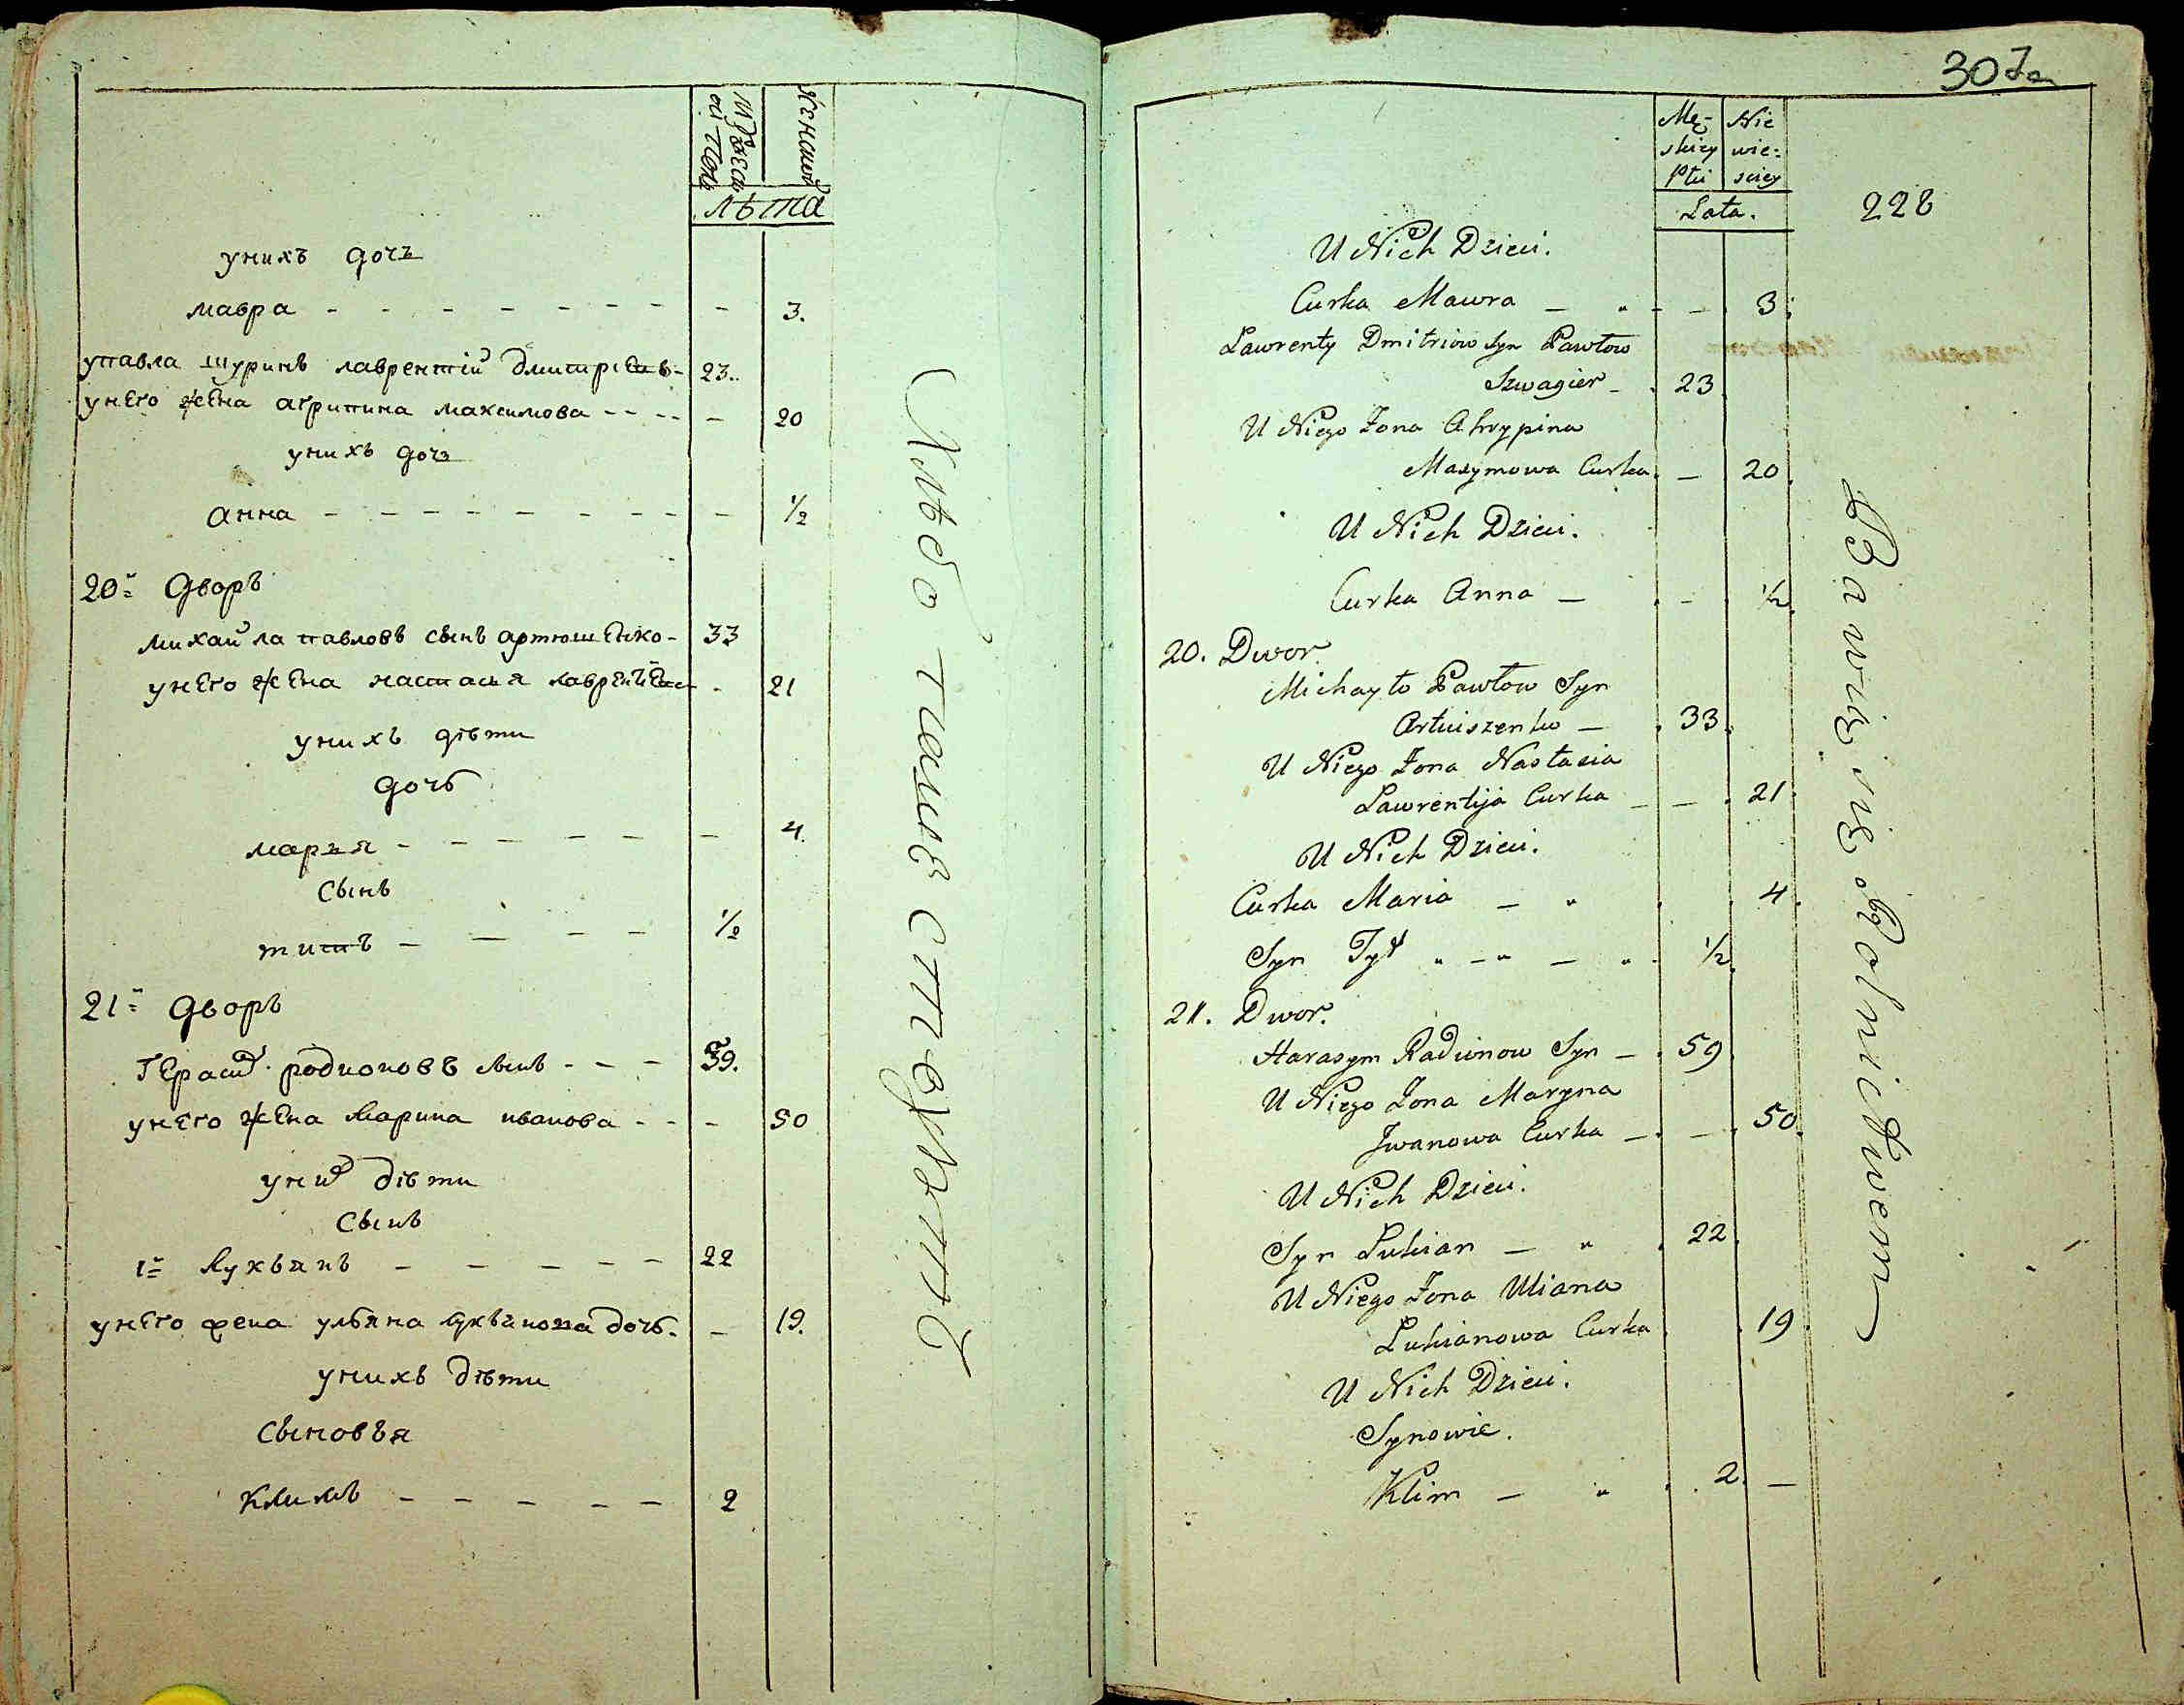 мужеска
го полу
женска
лѣта
унихъ дочъ
мавра - - - - - - - - 3.
упавла шуринъ лаврентій дмитріевъ - 23.
унего жена агрипина максимова - - - - - 20
унихъ дочъ
анна - - - - - - - - - 1/2
20й дворъ
михайла павловъ сынъ артюшенко - 33
унего жена настасья лаврентіева - 21
унихъ дѣти
дочь
марья - - - - - - 4.
сынъ
титъ - - - - 1/2
21й дворъ
Герасим родионовъ сынъ - - - 59.
унего жена Марина иванова - - - 50
уних дѣти
сынъ
1й Лукьянъ - - - - - 22
унего жена ульяна лукьянова дочь. - 19.
унихъ дѣти
сыновья
Климъ - - - - - 2
Хлѣбопашествуетъ
30
Mę-
skiey
Płci
Nie
wie-
sciey
Lata.
228
U Nich Dzieci.
Curka Mawra - " - - 3.
Lawrenty Dmitriow Syn Pawłow
Szwagier - 23
U Niego Zona Ahrypina
Maxymowa Curka. - 20
U Nich Dzieci.
Curka Anna - - 1/2
20. Dwor.
Michayło Pawłow Syn
Artiuszenko - 33
U Niego Zona Nastasia
Lawrentija Curka - - 21
U Nich Dzieci.
Curka Maria - " 4.
Syn Tyt " - " - " 1/2
21. Dwor.
Harasym Radionow Syn - 59
U Niego Zona Maryna
Jwanowa Curka - - 50.
U Nich Dzieci.
Syn Lukian - " 22
U Niego Zona Uliana
Lukianowa Curka 19
U Nich Dzieci.
Synowie.
Klim - " 2. -
Bawią się Rolnictwem